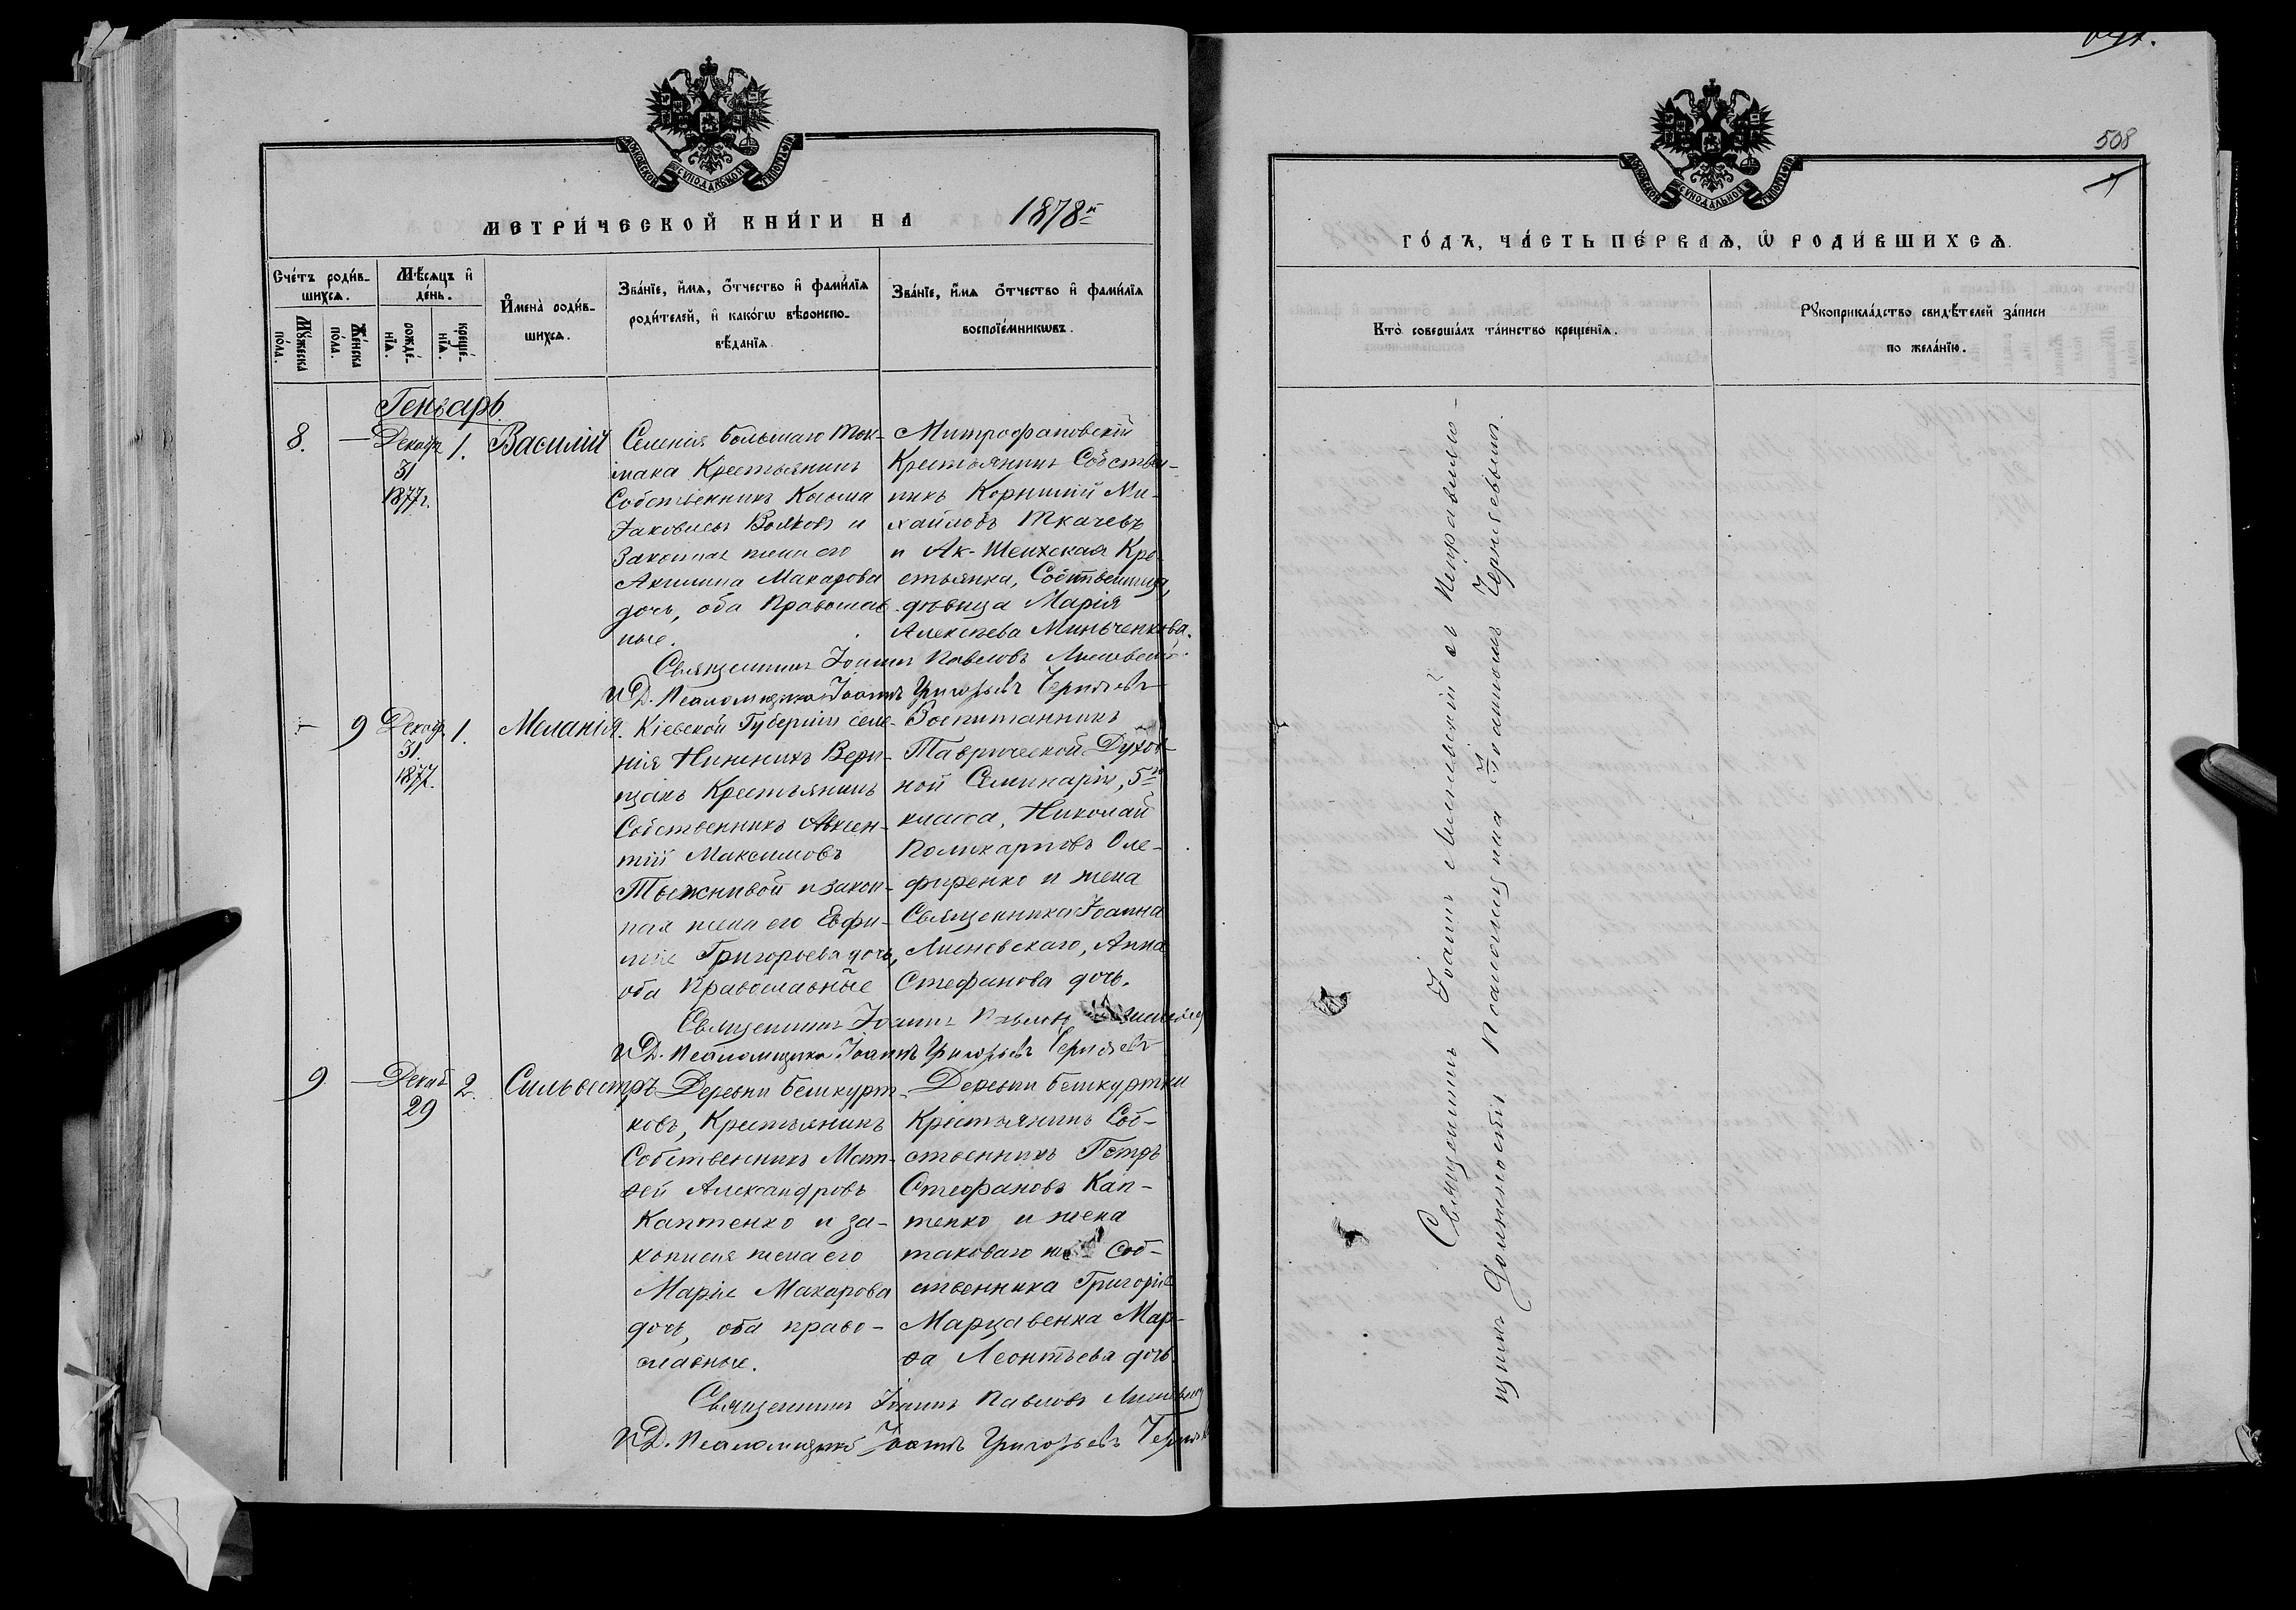 МЕТРИ́ЧЕСКОЙ КНИ́ГИ НА 1878й
Сче́тъ роди́в-
шихсѧ.
Мѣ́сѧцъ и҆
де́нь.
И҆мена̀ роди́в-
шихсѧ.
Зва́нїе, и҆́мѧ, ѻ҆́тчество и҆ фами́лїѧ
роди́телей, и҆ како́гѡ вѣроиспо-
вѣ́данїѧ.
Зва́нїе, и҆́мѧ ѻ҆́тчество и҆ фами́лїѧ
воспрїе́мникѡвъ.
Мꙋ́жеска
по́ла.
Же́нска
по́ла.
рожде́-
нїѧ.
креще́-
нїѧ.
Генварь.
8.
—
Декабр.
31
1877г.
1.
Василій
Селенія Большаго Ток-
мака Крестьянинъ
Собственникъ Косьма
Іаковлевъ Волковъ и
Законная жена его
Акилина Макарова
дочь, оба Православ-
ные.
Митрофановскій
Крестьянинъ Собствен-
никъ Корнилій Ми-
хайловъ Ткачевъ
и Ак-Шеихская Кре-
стьянка, Собственница,
дѣвица Марія
Алексѣева Минченкова.
Священникъ Іоаннъ Павловъ
И Д. Псаломщика Іоаннъ Григорьевъ Чернявевъ
—
9
Декабр.
31.
1877.
1.
Меланія.
Кіевской Губерніи селе-
нія Нижнихъ Вере-
щакъ Крестьянинъ
Собственникъ Авксен-
тій Максимовъ
и закон-
ная жена его Евфи-
мія Григорьева дочь,
оба Православные
Воспитанникъ
Таврической Духов-
ной Семинаріи, 5го
класса, Николай
Поликарповъ Оле-
фиренко и жена
Священника Іоанна
Анна
Стефанова дочь.
Священникъ Іоаннъ Павловъ
И Д. Псаломщика Іоаннъ Григорьевъ
9
—
Декаб
29
2.
Сильвестръ
Деревни Бешкурт-
ковъ, Крестьянинъ
Собственникъ Мат-
ѳей Александровъ
Каптенко и за-
конная жена его
Марія Макарова
дочь, оба право-
славные.
Деревни Бешкуртки
Крестьянинъ Соб-
ственникъ Петръ
Стефановъ Кап-
тенко и жена
таковаго же Соб-
ственника Григорія
Марцавенка Мар-
ѳа Леонтьева дочь
Священникъ Іоаннъ Павловъ
И Д. Псаломщика Іоаннъ Григорьевъ
508
ГО́ДЪ, ЧА́СТЬ ПЕ́РВАѦ, Ѽ РОДИ́ВШИХСѦ.
Кто̀ соверша́лъ та́инство креще́нїѧ.
Рꙋкоприкла́дство свидѣ́телей за́писи
по жела́нїю.
Священникъ Іоаннъ съ Исправляю-
щимъ Должность Псаломщика Іоанномъ